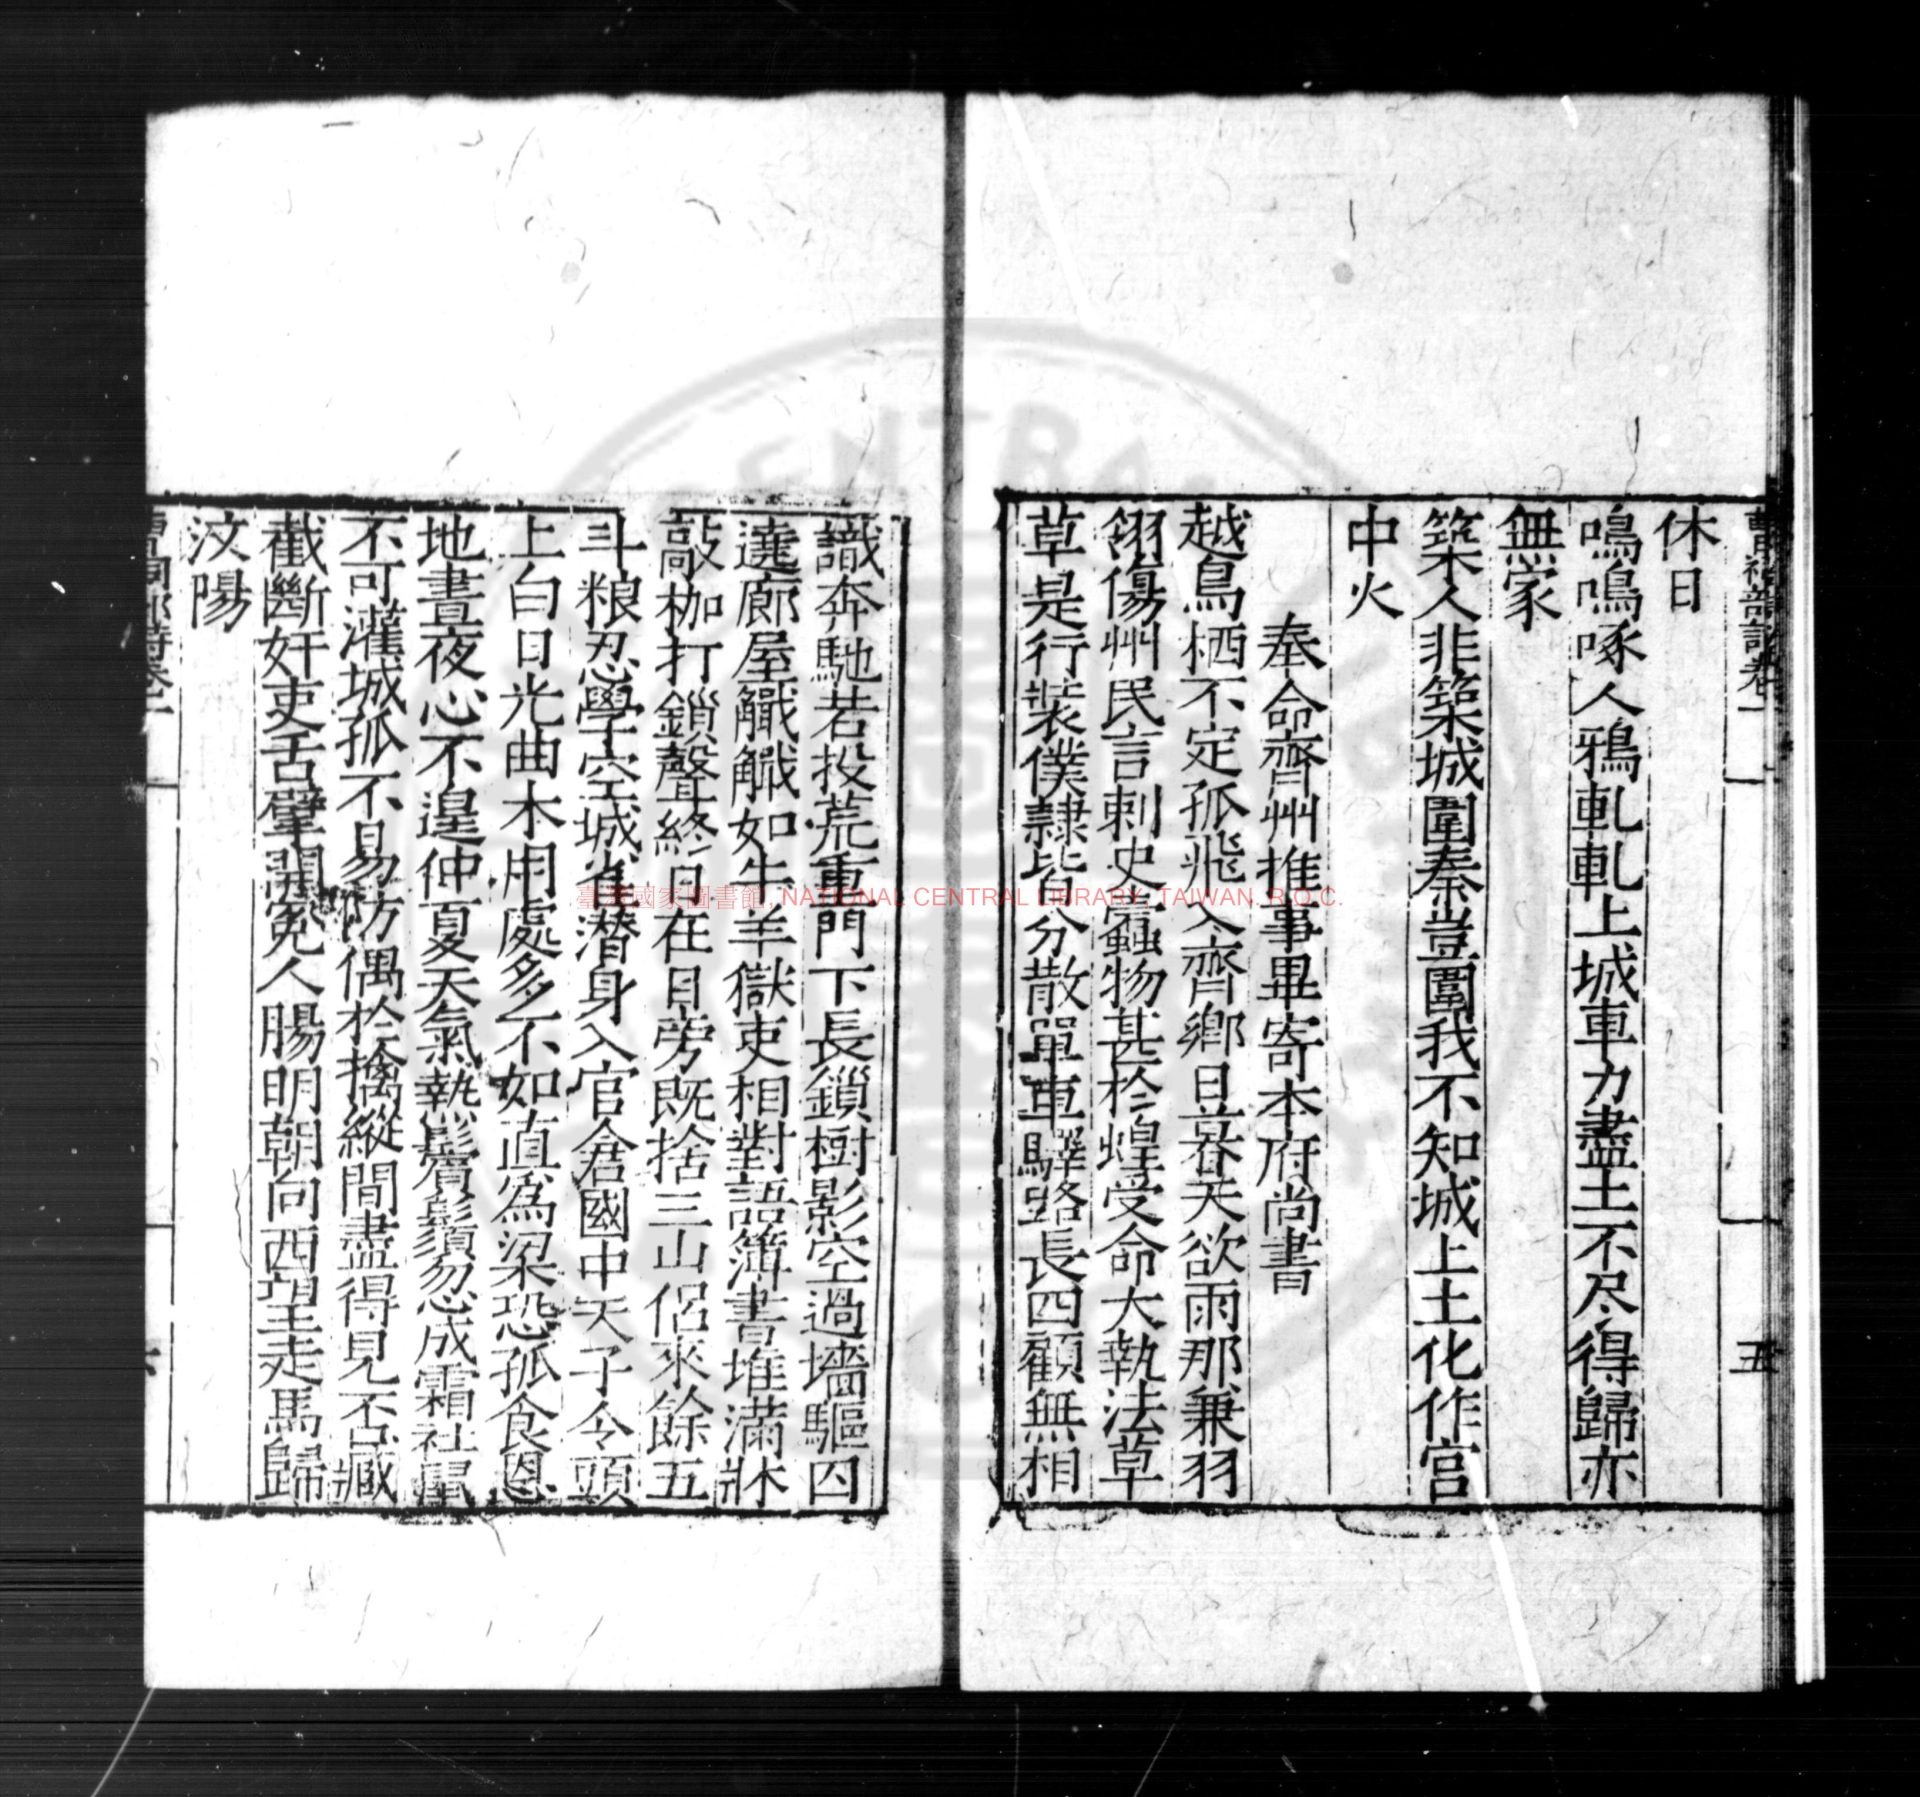 曹祠部詩卷一
五
休日
鳴鳴啄人鴉軋軋上城車力盡土不尽得歸亦
無家
築人非築城圍秦豈圍我不知城上土化作宫
中火
奉命齊州推事畢寄本府尚書
越鳥栖不定孤飛入齊鄉日暮天欲雨那兼羽
翎傷州民言刺史蠹物甚於蝗受命大執法草
草是行裝僕隸皆分散單車驛路長四顧無相
識奔馳若投荒重門下長鎖樹影空過墻驅囚
遶廊屋觿觿如牛羊獄吏相對語簿書堆滿牀
敲枷打鎖聲終日在目旁既捨三山侶來餘五
斗粮忍學空城雀潛身入官倉國中天子令頭
上白日光曲木用處多不如直爲梁恐孤食恩
地晝夜心不遑仲夏天氣熱鬢鬚忽成霜社鼠
不可灌城狐不易防偶於擒縱間盡得見否臧
截斷奸吏舌擘開冤人腸明朝向西望走馬歸
汶陽
臺灣國家圖書館, NATIONAL CENTRAL LIBRARY, TAIWAN. R.O.C.